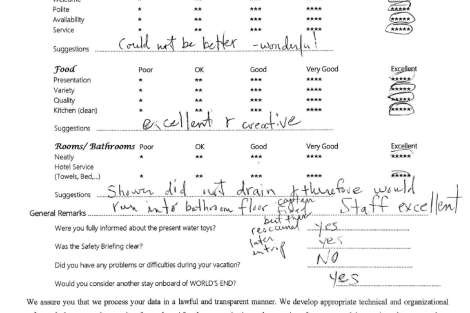 Polite * ** *** **** *****
Availability * ** *** **** *****
Service * ** *** **** *****
Suggestions Could not be better - wonderful!
Food Poor OK Good Very Good Excellent
Presentation * ** *** **** *****
Variety * ** *** **** *****
Quality * ** *** **** *****
Kitchen (clean) * ** *** **** *****
Suggestions excellent & creative
Rooms/ Bathrooms Poor OK Good Very Good Excellent
Neatly * ** *** **** *****
Hotel Service
(Towels, Bed,...) * ** *** **** *****
Suggestions Shower did not drain & therefore would
run into bathroom floor captain fixed
but then
reoccurred
later
in trip
Staff excellent
General Remarks
Were you fully informed about the present water toys? yes
Was the Safety Briefing clear? yes
Did you have any problems or difficulties during your vacation? NO
Would you consider another stay onboard of WORLD'S END? yes
We assure you that we process your data in a lawful and transparent manner. We develop appropriate technical and organizational